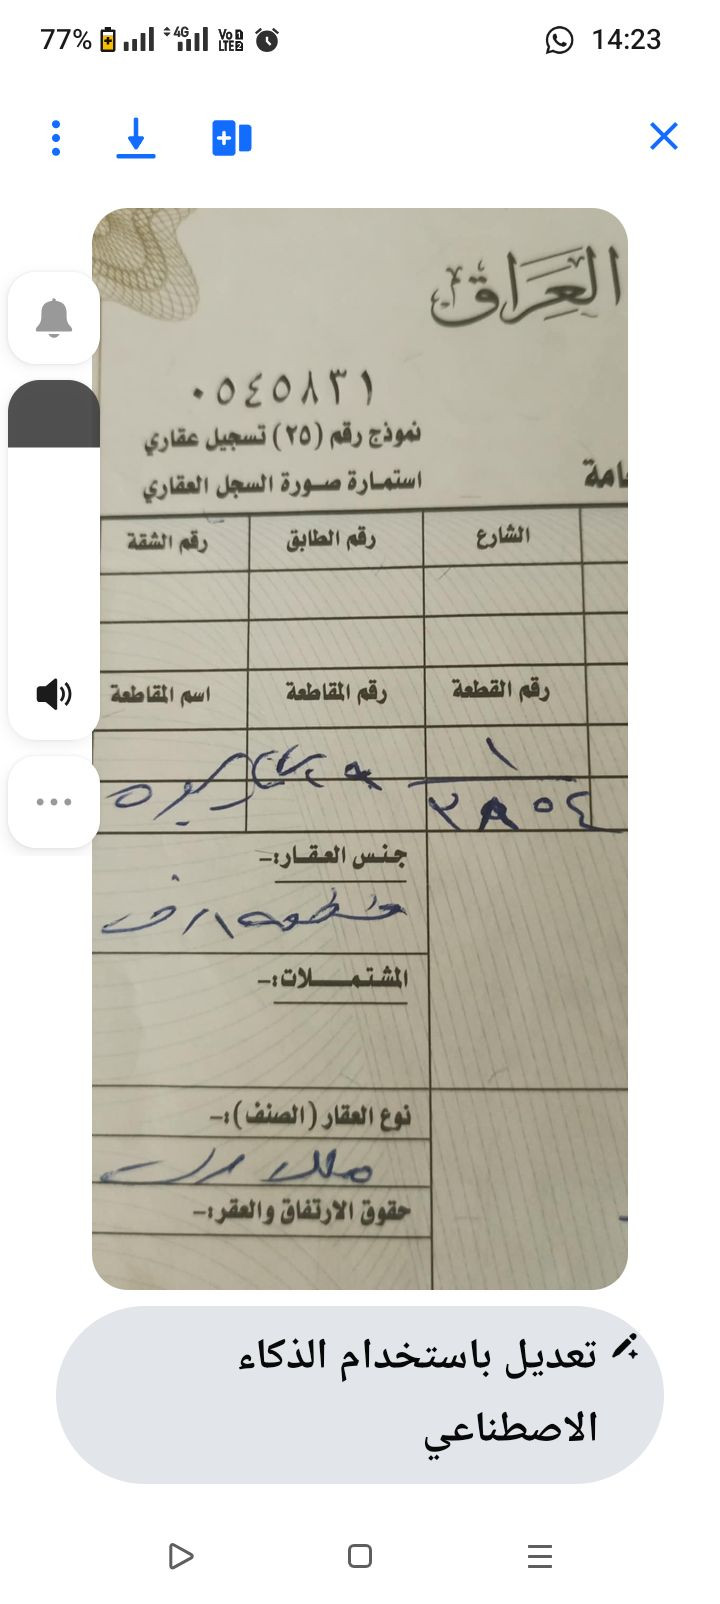 77% 4G Vo LTE 14:23
العراق
٠٥٤٥٨٣١
نموذج رقم (٢٥) تسجيل عقاري
استمارة صورة السجل العقاري
امة
الشارع رقم الطابق رقم الشقة
رقم القطعة رقم المقاطعة اسم المقاطعة
١
جنس العقار:-
قطعة ارض
المشتملات:-
نوع العقار (الصنف):-
ملك صرف
حقوق الارتفاق والعقر:-
تعديل باستخدام الذكاء
الاصطناعي